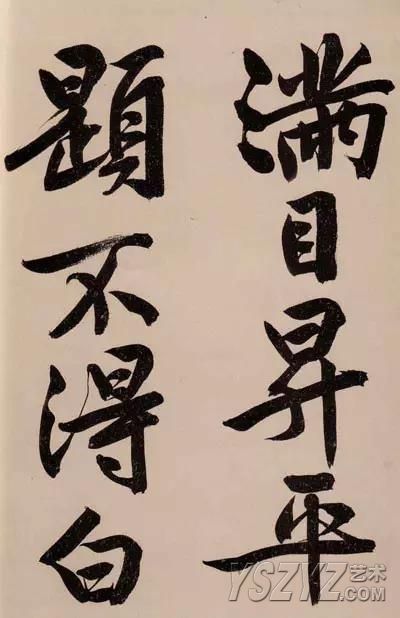 滿目昇平
題不得白
YSZYZ艺术
.COM